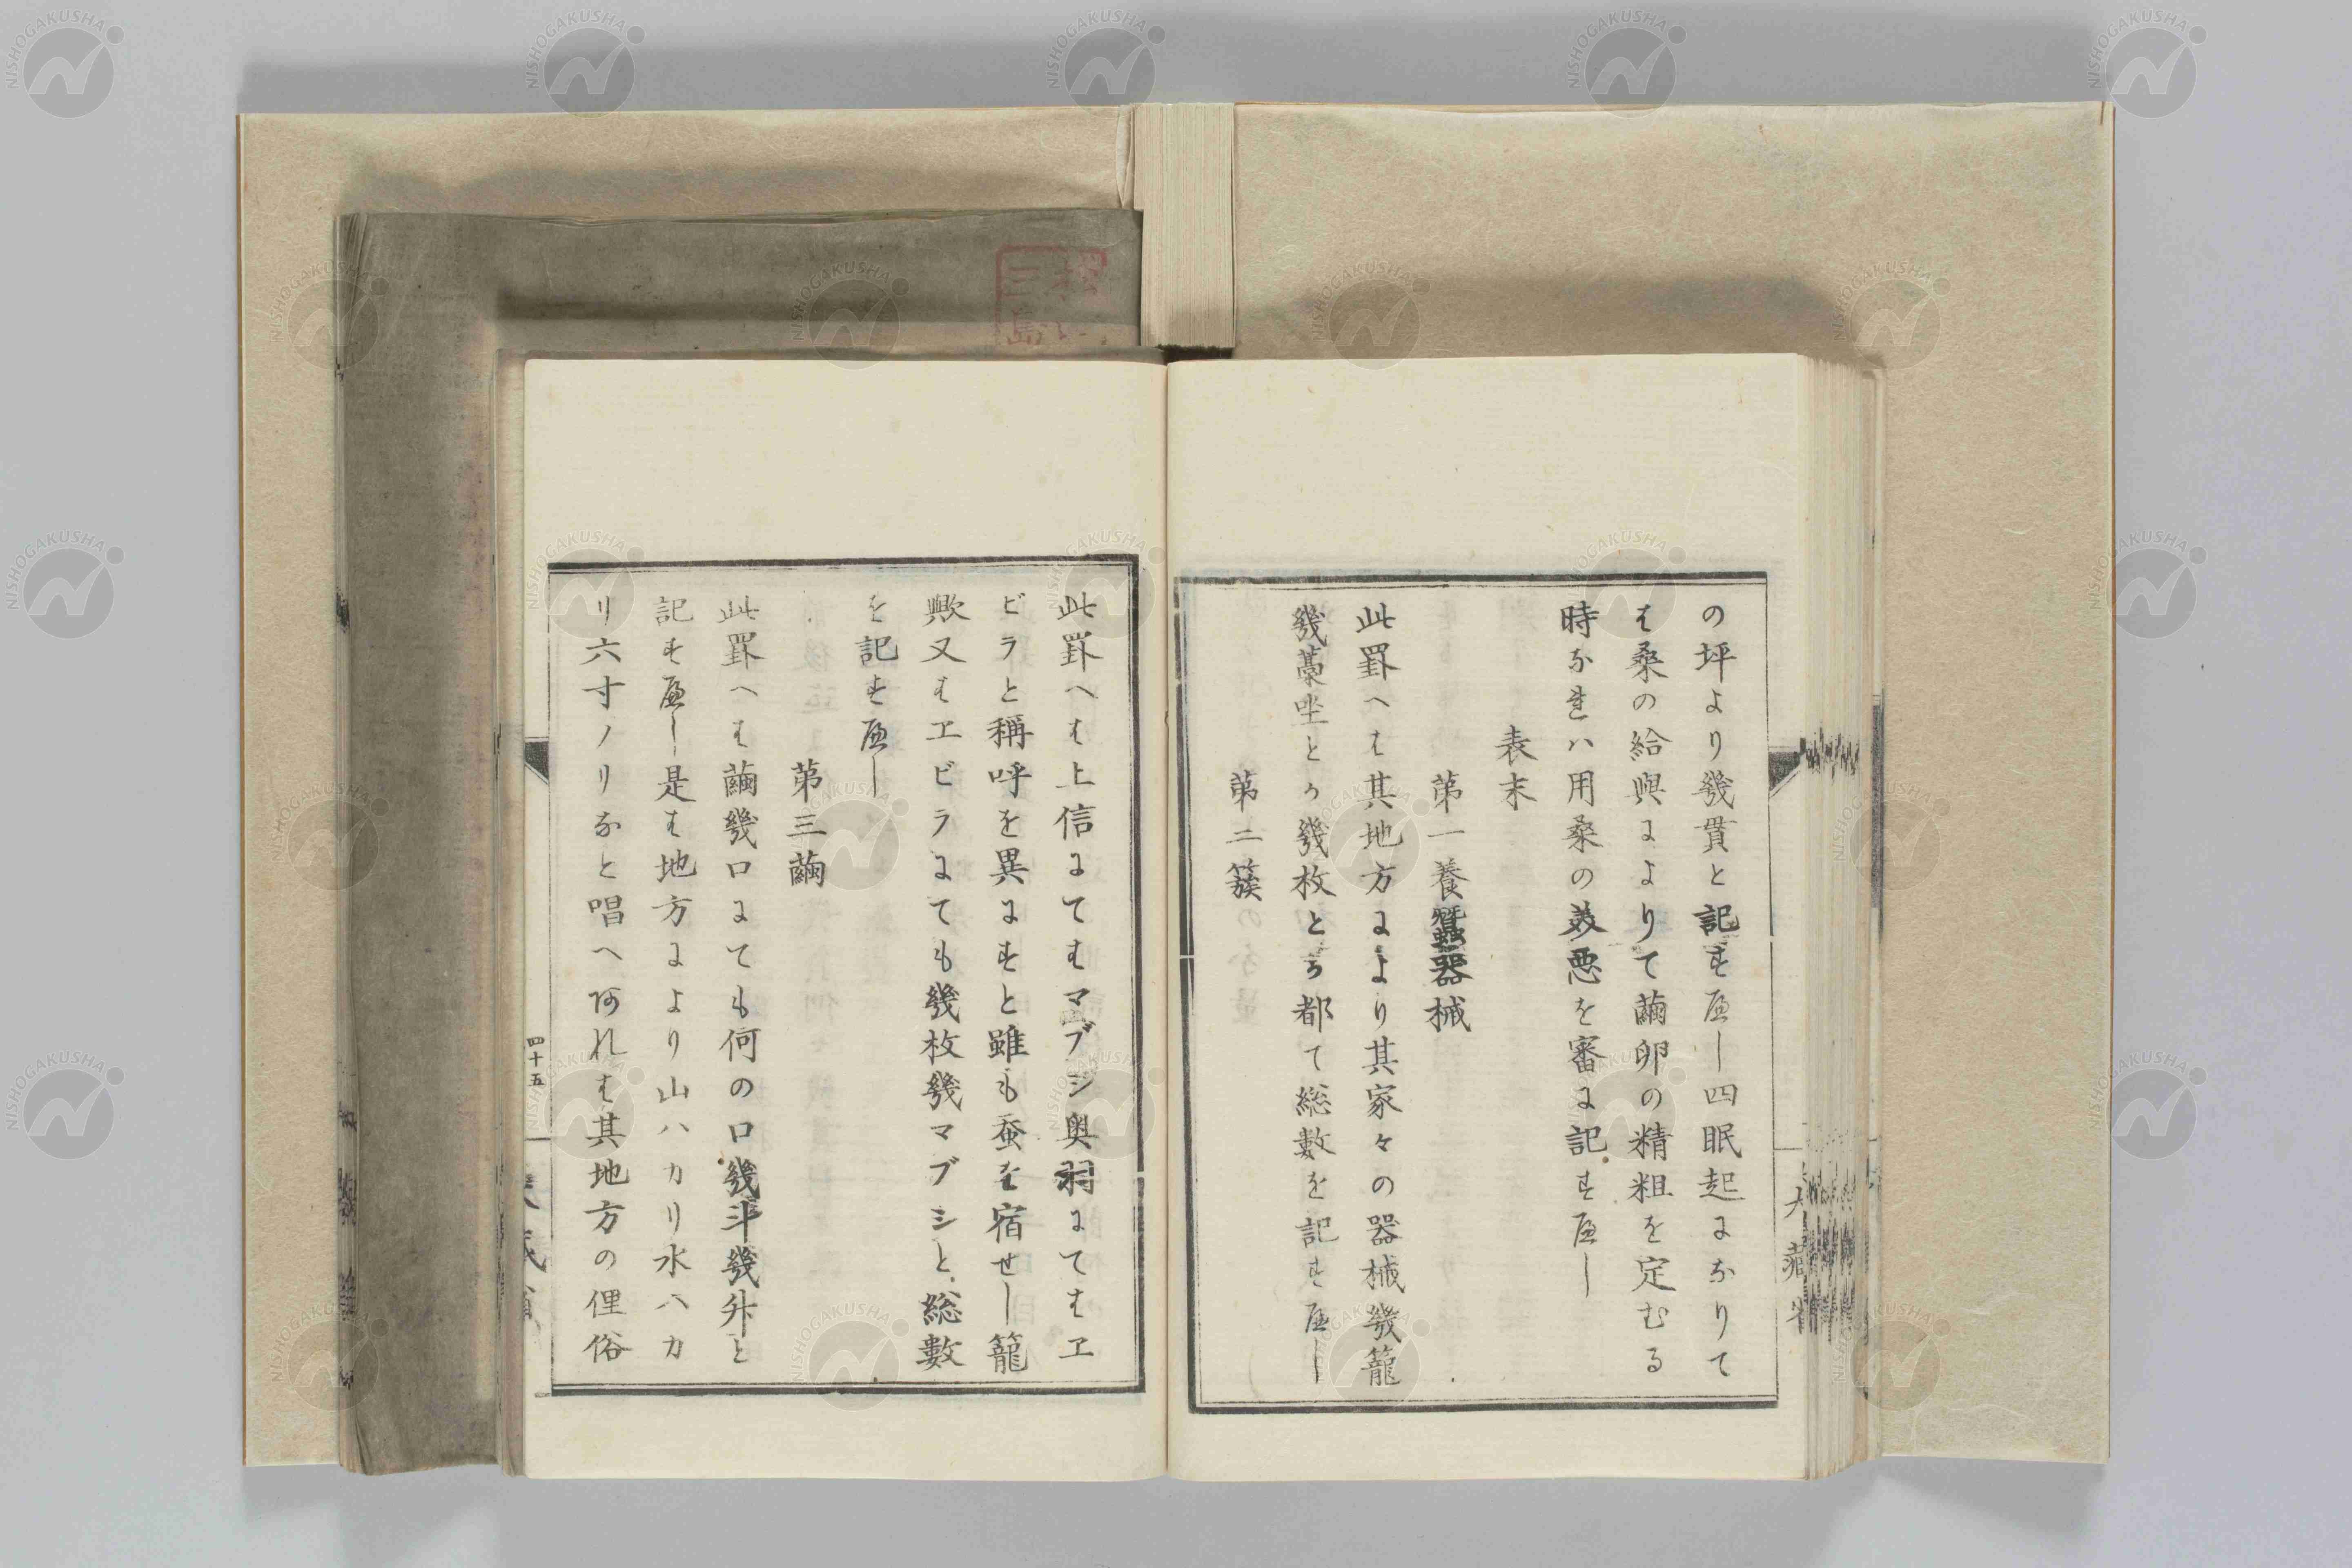 の坪より幾貫と記す𛂦し四眠起になりて
は桑の給與によりて繭卵の精粗を定むる
時なれハ用桑の美悪を審に記すべし
表末
第一養蠶器械
此罫へは其地方により其家々の器械幾籠
幾藁坐とか幾枚とか都て総數を記すべし
第二簇
此罫へは上信にてはマブシ奥羽にてはヱ
ビラと稱呼を異にすと雖も蚕を宿せし籠
歟又はヱビラにても幾枚幾マブシと総數
を記すべし
第三繭
此罫へは繭幾口にても何の口幾斗幾升と
記すべし是は地方により山ハカリ水ハカ
リ六寸ノリなと唱へ阿れは其地方の俚俗
四十五
大藏省
NISHOGAKUSHA